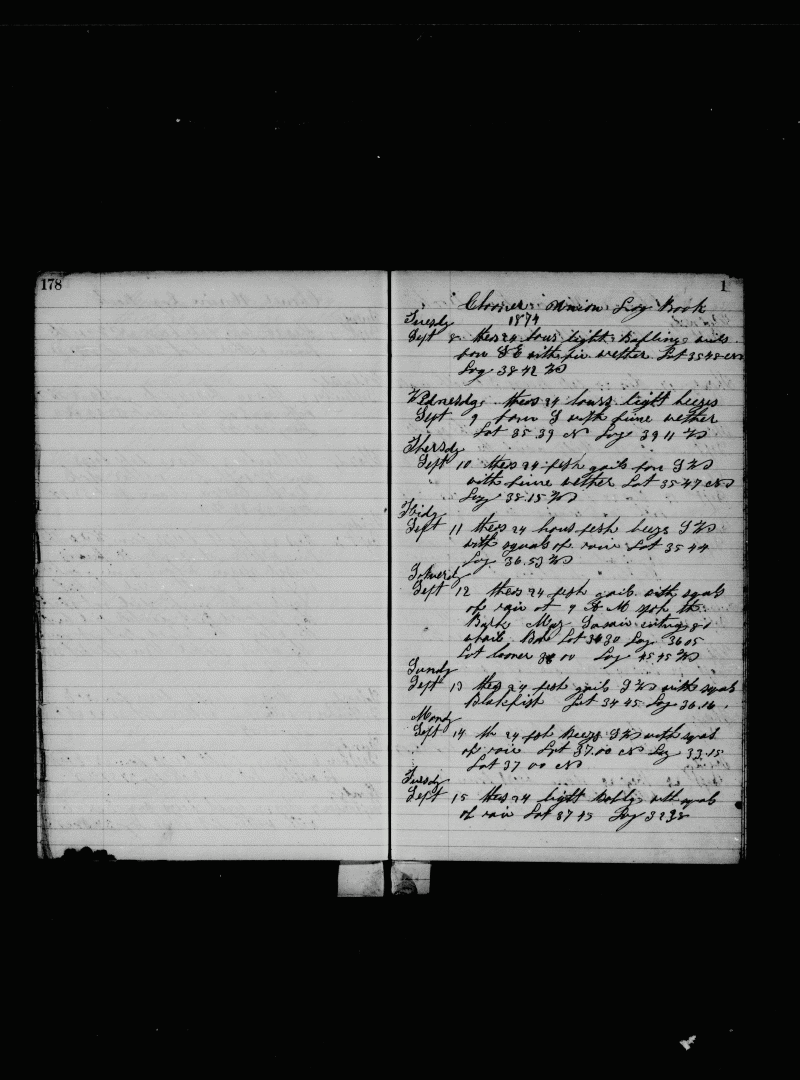 178
1
Clooner Union Log Book
Tuesdy 1874
Sept 8 thes 24 hours light Bafling
from S E with fin wether Lat 35 48 N
Log 38 42 W
Wednesdy thes 24 hours light breezs
Sept 9 from S with fine wether
Lat 35 39 N Loge 39 11 W
Thersdy
Sept 10 thes 24 fesh gails from S W
with fine wether Lat 35 47 N
Log 38 15 W
Fridy
Sept 11 thes 24 hours fesh breezs S W
with squals of rain Lat 35 44
Log 36.53 W
Sept 12 thes 24 fesh gails with squals
of rain at 9 A M the
Bark
Lat 30 Log 36 05
Lat 00 Log 45 45 W
Sundy
Sept 13 thes 24 fesh gails S W with squals
Blakfish Lat 34 45 Log 36.16
Mondy
Sept 14 th 24 fesh Breezs S W with squals
of rain Lat 37.00 N Log 33.15
Lat 37 00 N
Tuesdy
Sept 15 thes 24 light with squals
of rain Lat 37 45 Log